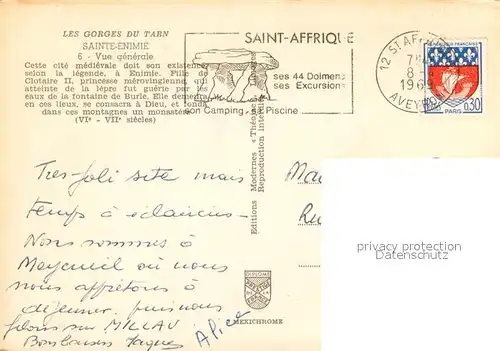 LES GORGES DU TARN
SAINTE-ENIMIE
6 - Vue générale
Cette cité médiévale doit son existence,
selon la légende, à Enimie. Fille de
Clotaire II, princesse mérovingienne, qui
atteinte de la lèpre fut guérie par les
eaux de la fontaine de Burle. Elle demeura
en ces lieux, se consacra à Dieu, et fonda
dans ces montagnes un monastère
(VIe - VIIe siècles)
SAINT-AFFRIQUE
ses 44 Dolmens
ses Excursions
son Camping - sa Piscine
12 St AFFRIQUE
8
1969
AVEYRON
REPUBLIQUE FRANÇAISE
PARIS
0,30
Editions Modernes « Théojac »
Reproduction interdite
Très joli site mais
Temps à éclaircies -
Nous sommes à
Meyrueil où nous
nous apprêtons à
déjeuner, puis nous
filons sur MILLAU
Jaques
Alice
DIPLOME
PRESTIGE
DE LA
FRANCE
MEXICHROME
privacy protection
VDMedien24.de